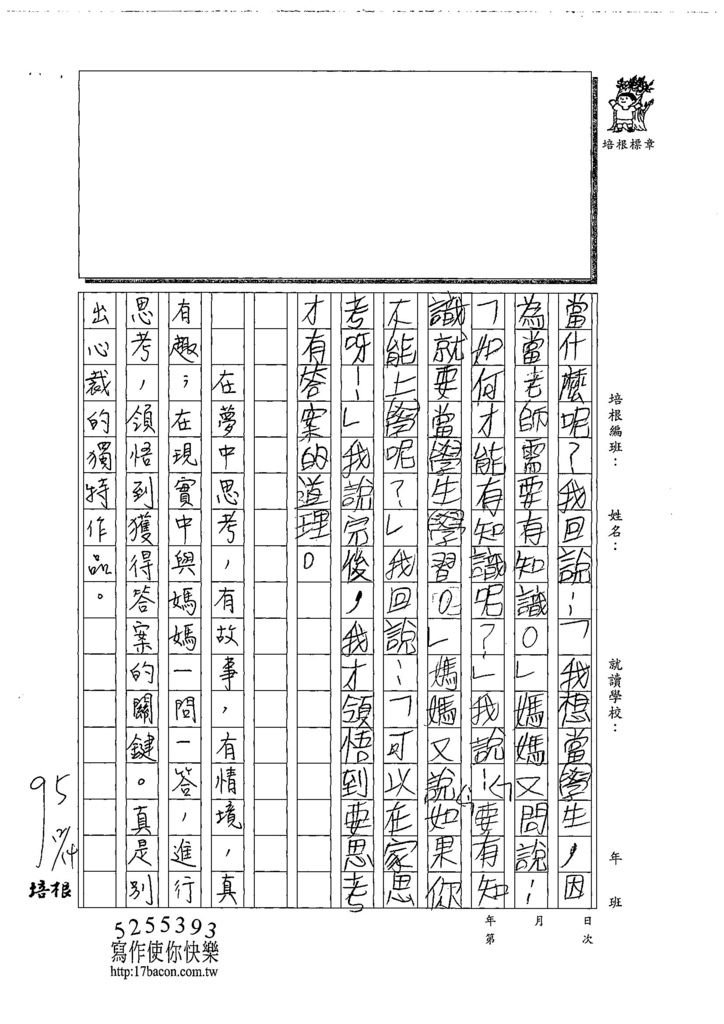 培根標章
培根編班：
姓名：
就讀學校：
年 班
日次
月
年第
當什麼呢？我回說：「我想當學生，因
為當老師需要有知識。」媽媽又問說：
「如何才能有知識呢？」我說：「要有知
識就要當學生學習。」媽媽又說：「如果你
不能上學呢？」我回說：「可以在家思
考呀！」我說完後，我才領悟到要思考
才有答案的道理。
在夢中思考，有故事，有情境，真
有趣；在現實中與媽媽一問一答，進行
思考，領悟到獲得答案的關鍵。真是別
出心裁的獨特作品。
95
12/14
培根
5255393
寫作使你快樂
http:17bacon.com.tw